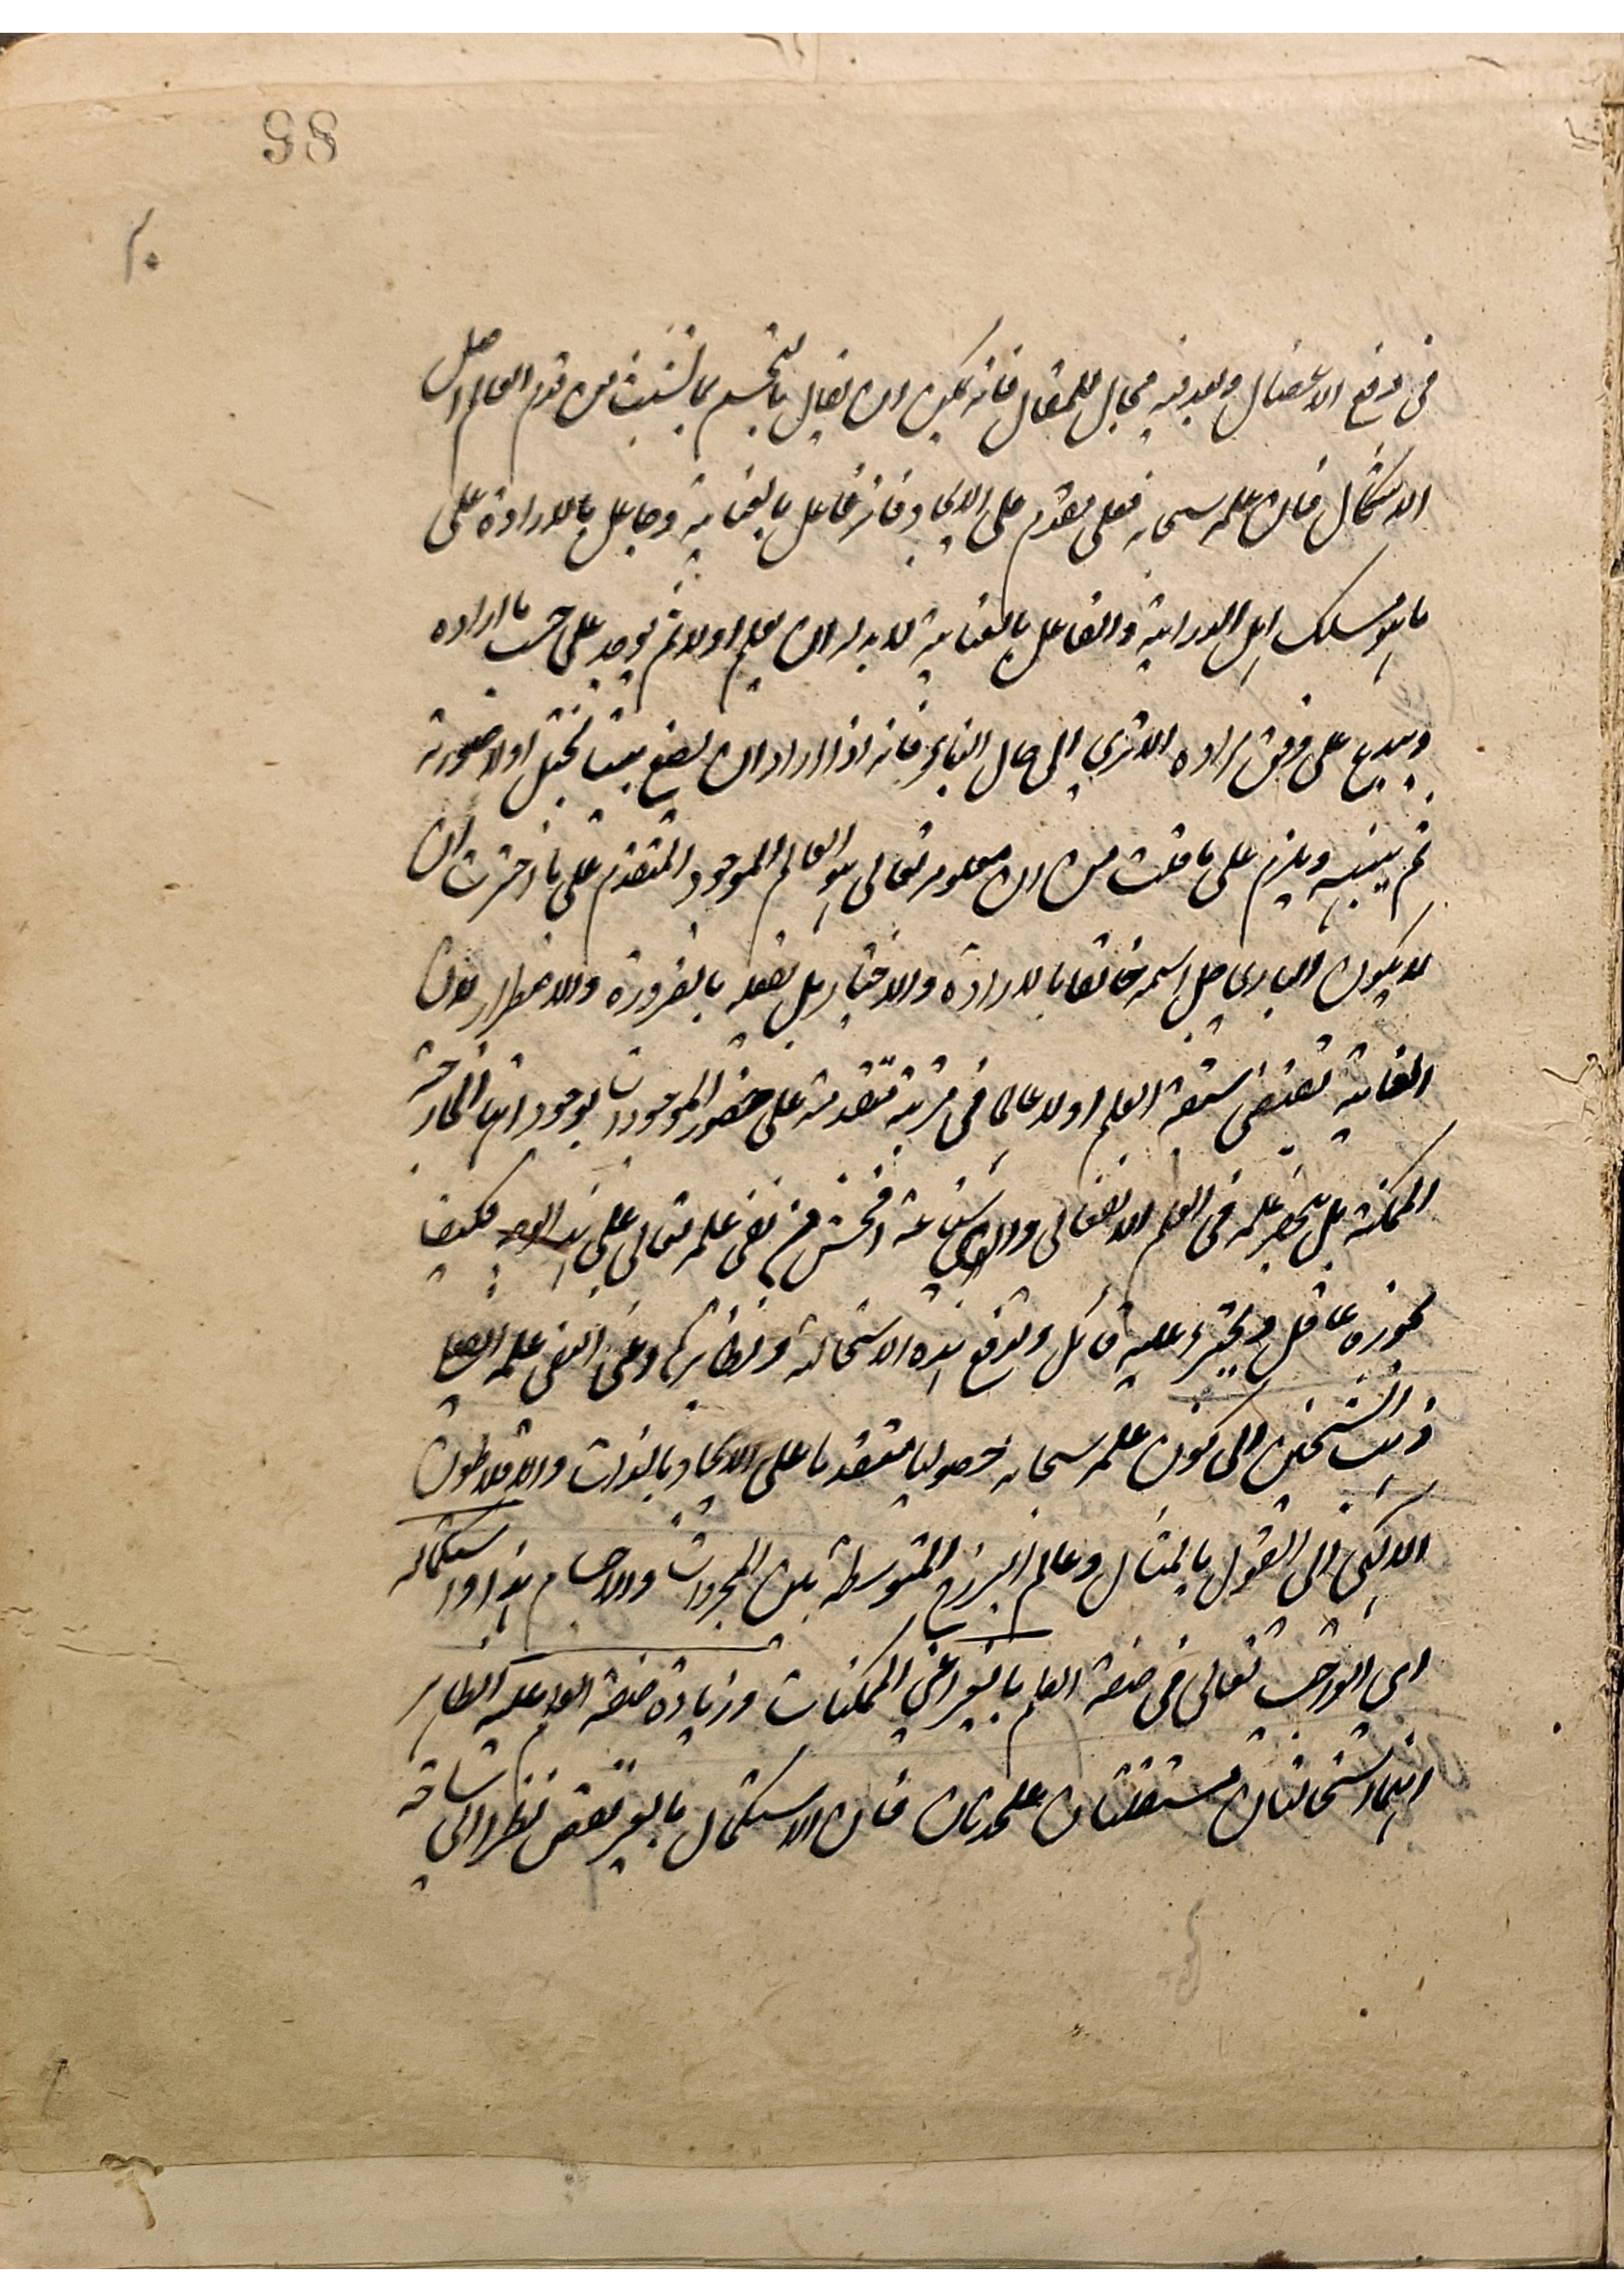 98
في دفع الاعضال وبعد فيه مجال للمقال فانه يمكن ان يقال بالتجسم بما تشبث من قدم العالم اصل
الاشكال فان علمه سبحانه فعلي مقدم على الايجاد فانه فاعل بالعناية وجاعل بالارادة على
ما هو مسلك اهل الدراية والفاعل بالعناية لا بد له ان يعلم اولا ثم يوجد على حسب ما اراده
ويبدع على وفق مراده الا ترى الى حال البناء فانه اذا اراد ان يصنع بيتا تخيل اولا صورته
ثم يبنيه ويلزم على ما قلت من ان معلومه تعالى هو العالم الموجود المتقدم على ما اخترت ان
لا يكون الباري جل اسمه خالقا بالارادة والاختيار بل يفعله بالضرورة والاضطرار لان
العناية تقتضي سبقة العلم اولا عالما في مرتبة متقدمة على حضور الموجودات بوجوداتها الخارجة
الممكنة بل ينحصر علمه في العلم الانفعالي واي شناعة افحش من نفي علمه تعالى على هذا الوجه فكيف
يجوزه عاقل ويجترء عليه قائل ولدفع هذه الاستحالة ونظائرها وعن نفي علمه الفعلي
ذهب الشيخين الى كون علمه سبحانه حصوليا متقدما على الايجاد بالذات والافلاطون
الالهي الى القول بالمثال وعالم البرزخ المتوسطة بين المجردات والاجسام هذا واستكماله
اي الواجب تعالى في صفة العلم بالغير اعني الممكنات وزيادة صفة العلم عليه الظاهر
انهما استحالتان مستقلتان علحدتان فان الاستكمال بالغير نقص نظرا الى شاحة